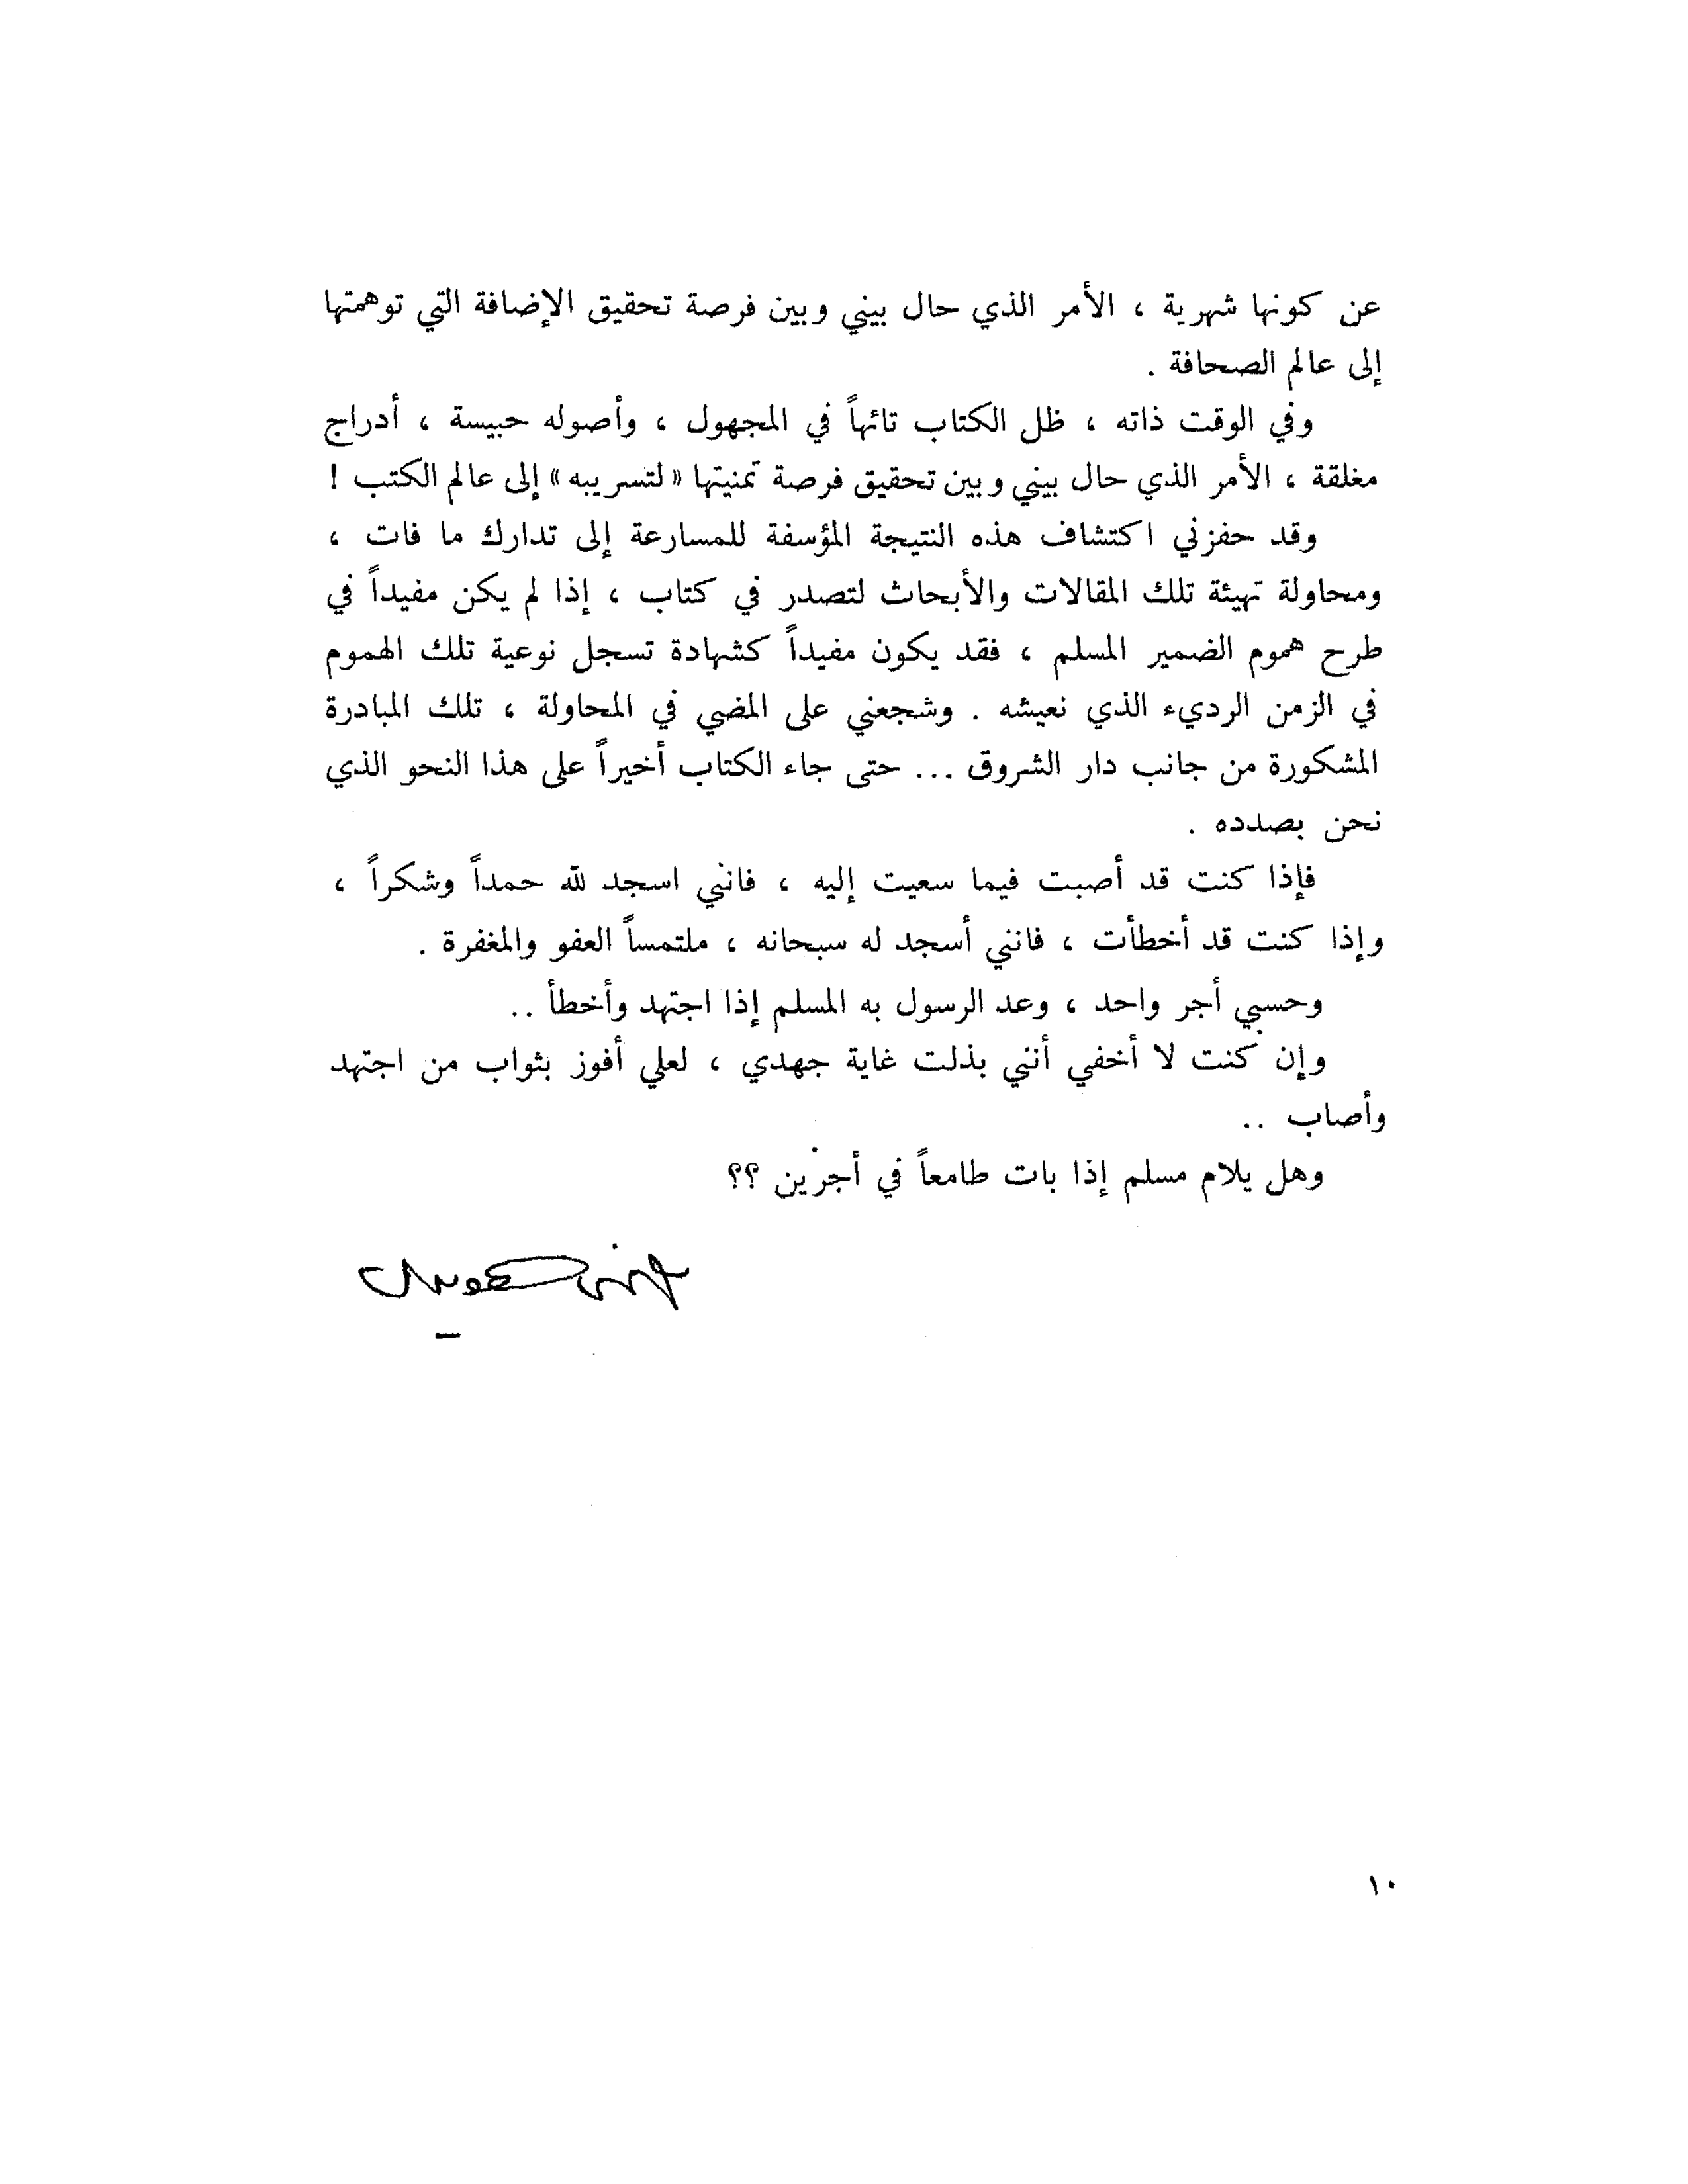 عن كونها شهرية ، الأمر الذي حال بيني وبين فرصة تحقيق الإضافة التي توهمتها
إلى عالم الصحافة .
وفي الوقت ذاته ، ظل الكتاب تائهاً في المجهول ، وأصوله حبيسة ، أدراج
مغلقة ، الأمر الذي حال بيني وبين تحقيق فرصة تمنيتها « لتسريبه » إلى عالم الكتب !
وقد حفزني اكتشاف هذه النتيجة المؤسفة للمسارعة إلى تدارك ما فات ،
ومحاولة تهيئة تلك المقالات والأبحاث لتصدر في كتاب ، إذا لم يكن مفيداً في
طرح هموم الضمير المسلم ، فقد يكون مفيداً كشهادة تسجل نوعية تلك الهموم
في الزمن الرديء الذي نعيشه . وشجعني على المضي في المحاولة ، تلك المبادرة
المشكورة من جانب دار الشروق ... حتى جاء الكتاب أخيراً على هذا النحو الذي
نحن بصدده .
فإذا كنت قد أصبت فيما سعيت إليه ، فانني اسجد لله حمداً وشكراً ،
وإذا كنت قد أخطأت ، فانني أسجد له سبحانه ، ملتمساً العفو والمغفرة .
وحسبي أجر واحد ، وعد الرسول به المسلم إذا اجتهد وأخطأ ..
وإن كنت لا أخفي أنني بذلت غاية جهدي ، لعلي أفوز بثواب من اجتهد
وأصاب ..
وهل يلام مسلم إذا بات طامعاً في أجرين ؟؟
١٠